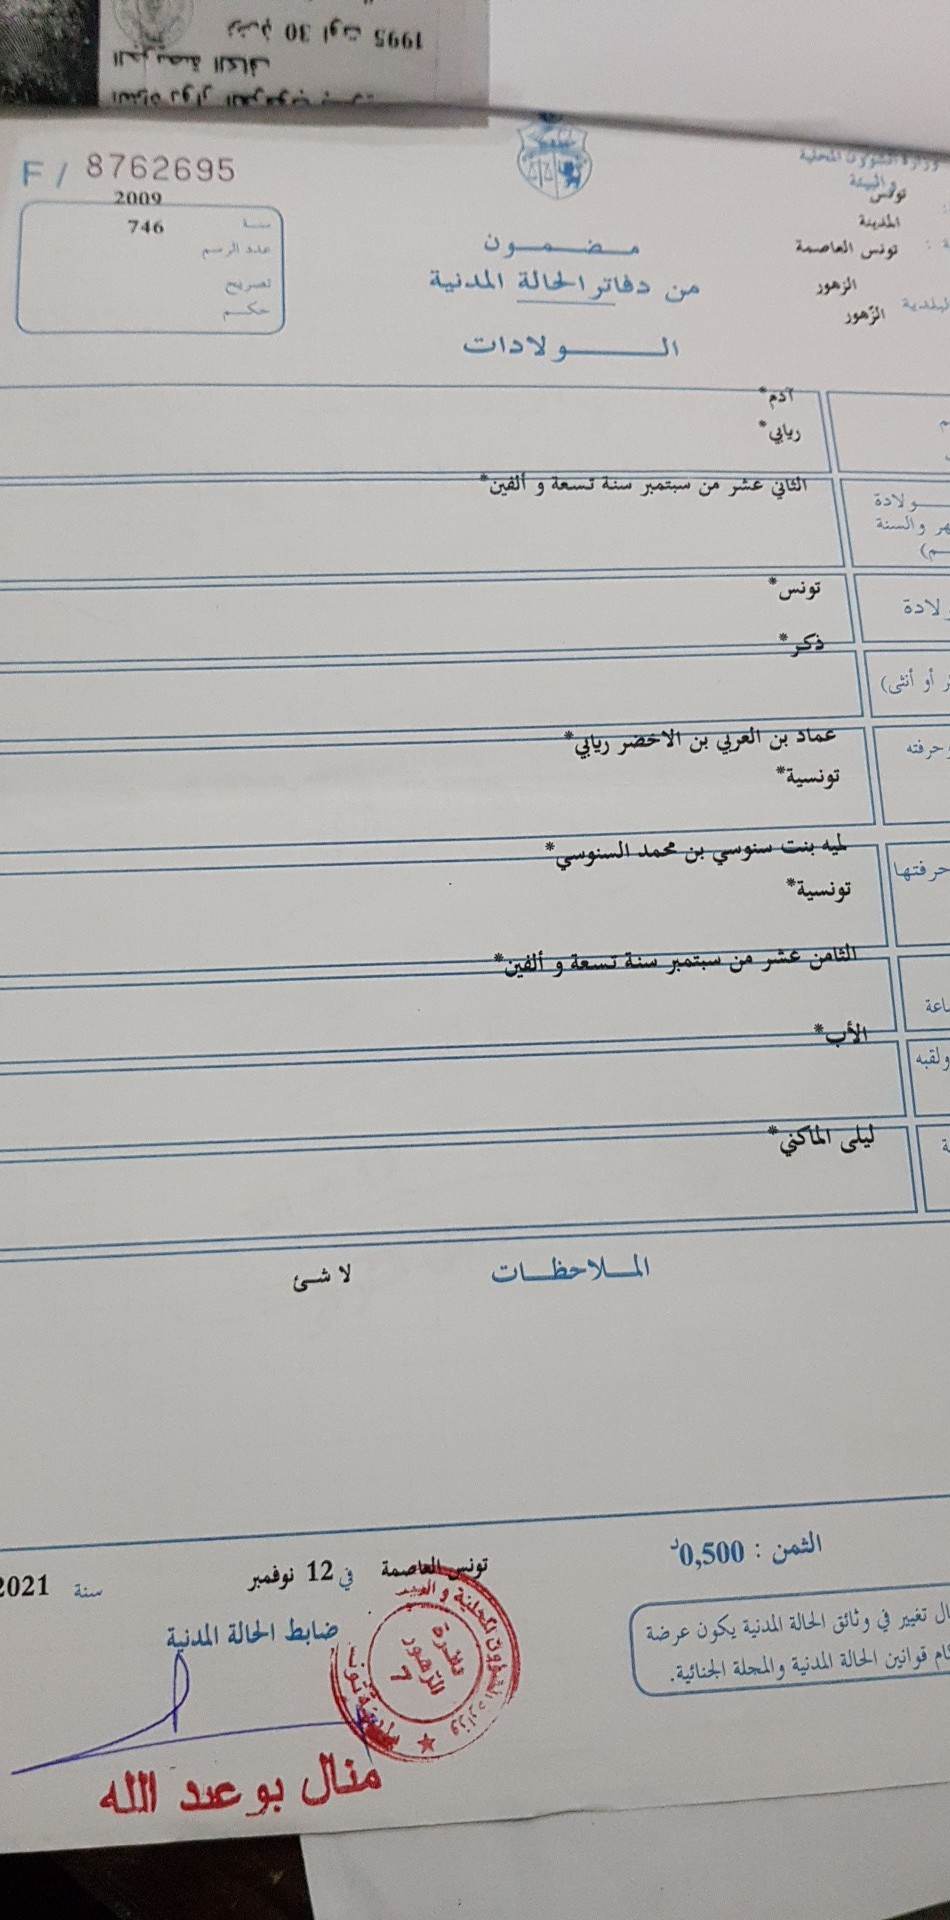 1995 تونس 30 اوت
F / 8762695
2009
سنة
746
عدد الرسم
تصريح
حكم
وزارة الشؤون المحلية
والبيئة
تونس
المدينة
تونس العاصمة
الزهور
البلدية
الزّهور
مضمون
من دفاتر الحالة المدنية
الولادات
آدم*
ريابي*
ولادة
والسنة
الثاني عشر من سبتمبر سنة تسعة و ألفين*
تونس*
ذكر*
أو أنثى)
وحرفته
عماد بن العربي بن الاخضر ريابي*
تونسية*
حرفتها
لميه بنت سنوسي بن محمد السنوسي*
تونسية*
الثامن عشر من سبتمبر سنة تسعة و ألفين*
الأب*
ولقبه
ليلى الماكني*
الملاحظات
لا شئ
الثمن : 0,500د
تونس العاصمة في 12 نوفمبر سنة 2021
ضابط الحالة المدنية
تغيير في وثائق الحالة المدنية يكون عرضة
قوانين الحالة المدنية والمجلة الجنائية.
وزارة الشؤون المحلية و البيئة
دائرة
الزهور
7
بلدية تونس
منال بوعبد الله